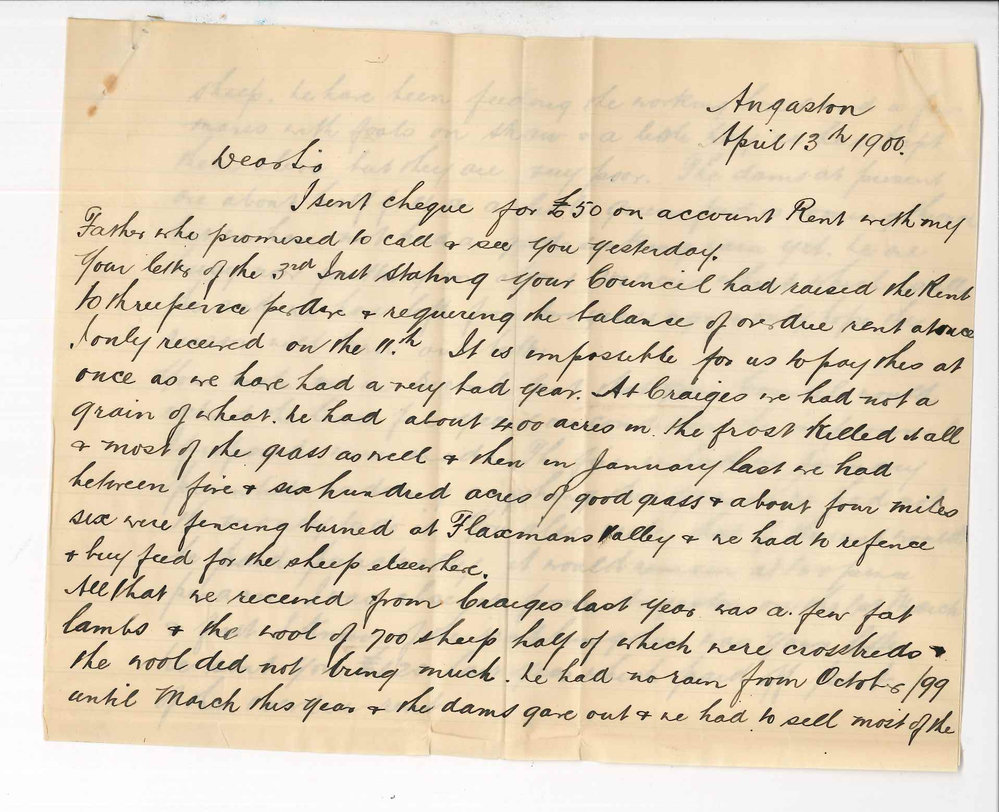 Angaston
April 13th 1900.
Dear Sir
I sent cheque for £50 on account Rent with my
Father who promised to call & see you yesterday.
Your letter of the 3rd Inst stating your Council had raised the Rent
to threepence per Acre & requering the balance of overdue rent at once
I only received on the 11.th It is impossible for us to pay this at
once as we have had a very bad year. At Craiges we had not a
grain of wheat. We had about 400 acres in. the frost killed it all
& most of the grass as well & then in January last we had
between five & six hundred acres of good grass & about four miles
six wire fencing burned at Flaxmans Valley & we had to refence
& buy feed for the sheep elsewhere.
All that we received from Craiges last year was a few fat
lambs & the wool of 700 sheep half of which were crossbreds &
the wool did not bring much. We had no rain from October/99
until March this year & the dams gave out & we had to sell most of the